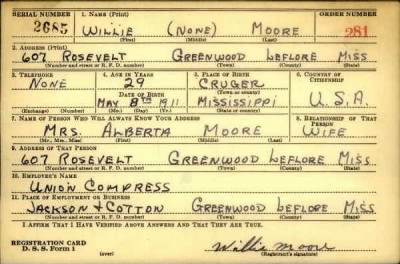 SERIAL NUMBER 1. NAME (Print) ORDER NUMBER
2685 WILLIE (NONE) MOORE 281
(First) (Middle) (Last)
2. ADDRESS (Print)
607 ROSEVELT GREENWOOD LEFLORE MISS
(Number and street or R. F. D. number) (Town) (County) (State)
3. TELEPHONE 4. AGE IN YEARS 5. PLACE OF BIRTH 6. COUNTRY OF CITIZENSHIP
NONE 29 CRUGER
DATE OF BIRTH (Town or county)
MAY 8TH 1911 MISSISSIPPI U.S.A.
(Exchange) (Number) (Mo.) (Day) (Yr.) (State or country)
7. NAME OF PERSON WHO WILL ALWAYS KNOW YOUR ADDRESS 8. RELATIONSHIP OF THAT PERSON
MRS. ALBERTA MOORE WIFE
(Mr., Mrs., Miss) (First) (Middle) (Last)
9. ADDRESS OF THAT PERSON
607 ROSEVELT GREENWOOD LEFLORE MISS.
(Number and street or R. F. D. number) (Town) (County) (State)
10. EMPLOYER'S NAME
UNION COMPRESS
11. PLACE OF EMPLOYMENT OR BUSINESS
JACKSON + COTTON GREENWOOD LEFLORE MISS
(Number and street or R. F. D. number) (Town) (County) (State)
I AFFIRM THAT I HAVE VERIFIED ABOVE ANSWERS AND THAT THEY ARE TRUE.
REGISTRATION CARD
D. S. S. Form 1 (over) Willie Moore
(Registrant's signature)